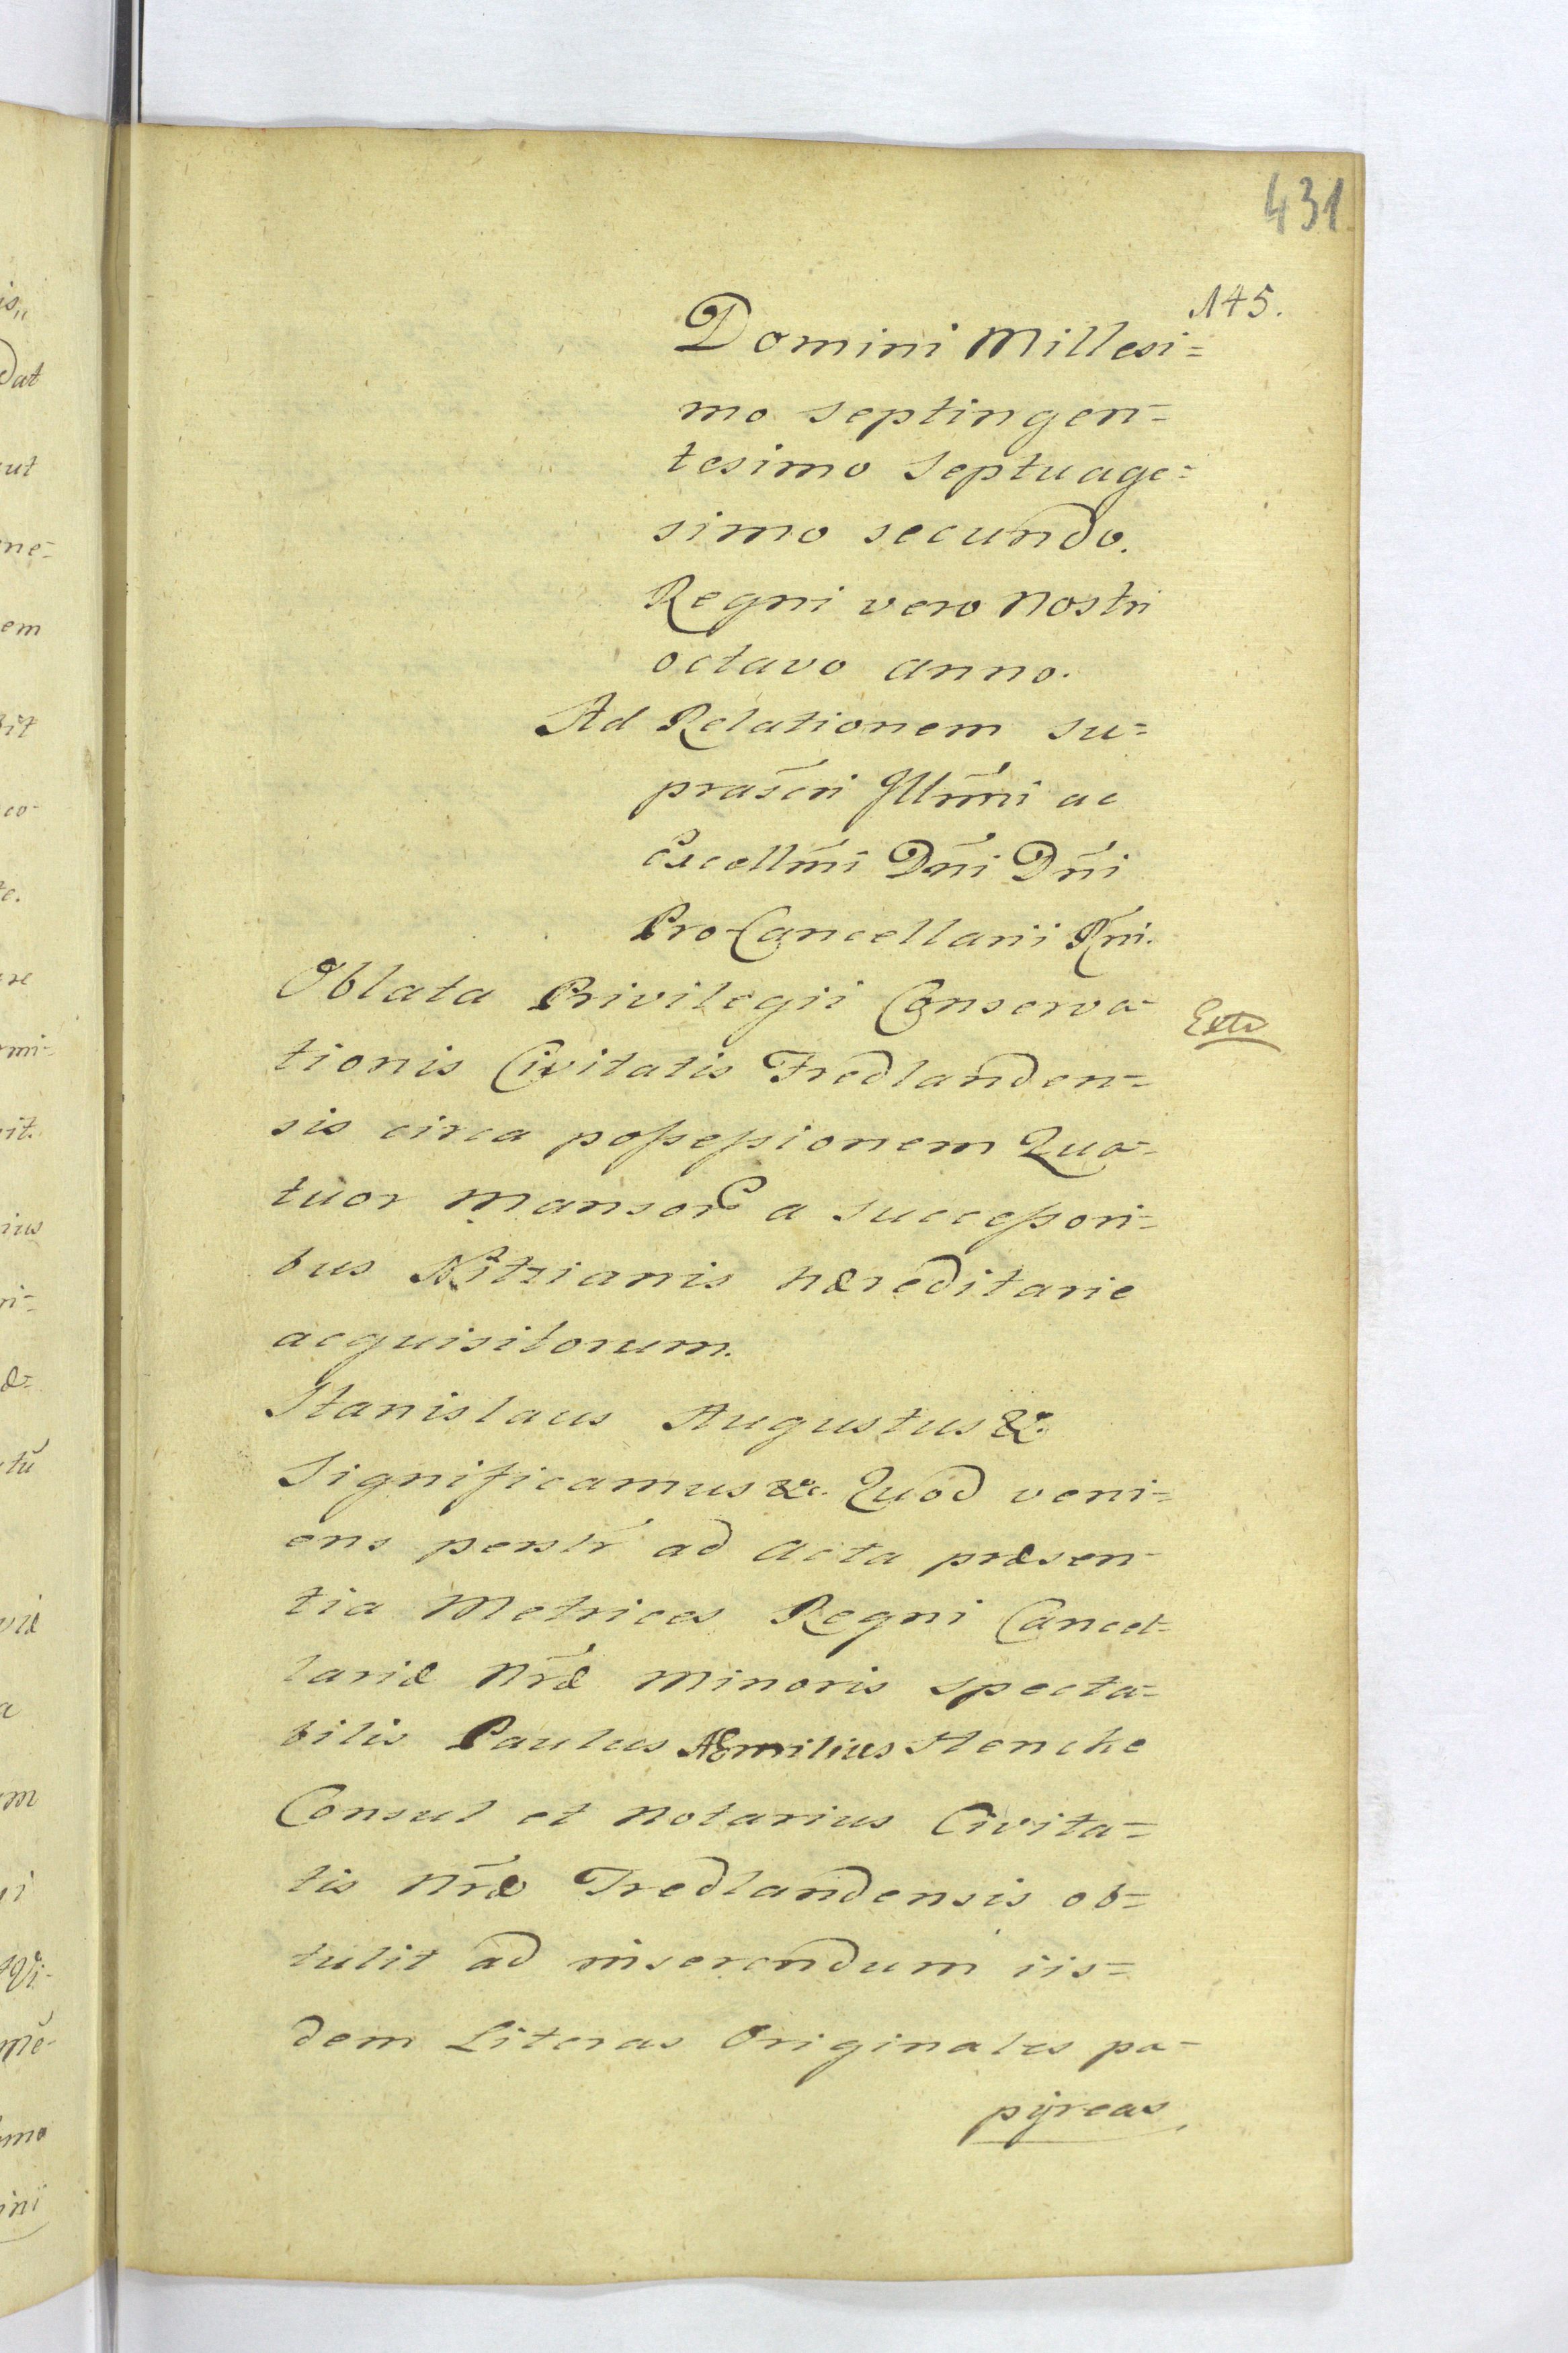 431
145.
Domini Millesi=
mo septingen=
tesimo Septuage=
simo secundo.
Regni vero Nostri
octavo anno.
Ad Relationem su=
prascri Illmni ac
Excellmi Dni Dni
Pro-Cancellarii Rni.
Oblata Privilegii Conserva-
tionis Civitatis Fredlanden=
sis circa possessionem Qua-
tuor Mansor a successori=
bus Nitzianis hæreditarie
acquisitorum.
Extr
Stanislaus Augustus &c.
Significamus &c. Quod veni=
ens personlr ad Acta præsen-
tia Metrices Regni Cancel=
lariæ Nræ Minoris specta=
bilis Paulus Æmilius Hencke
Consul et Notarius Civita=
tis Nræ Fredlandensis ob=
tulit ad inserendum iis=
dem Literas Originales pa-
pÿreas